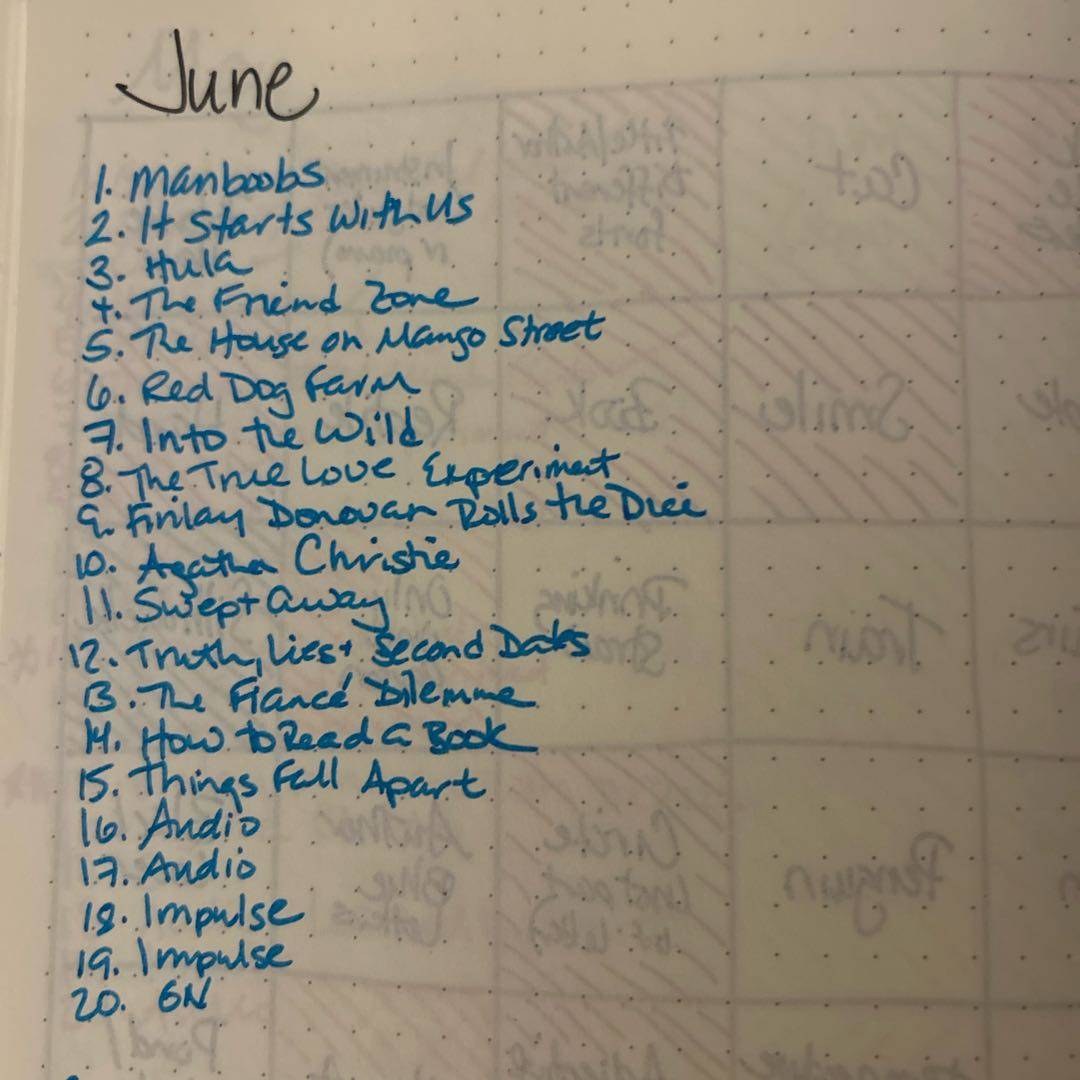 June
1. Manboobs
2. It Starts With Us
3. Hula
4. The Friend Zone
5. The House on Mango Street
6. Red Dog Farm
7. Into the Wild
8. The True Love Experiment
9. Finlay Donovan Rolls the Dice
10. Agatha Christie
11. Swept Away
12. Truth, Lies + Second Dates
13. The Fiancé Dilemma
14. How to Read a Book
15. Things Fall Apart
16. Audio
17. Audio
18. Impulse
19. Impulse
20. GN